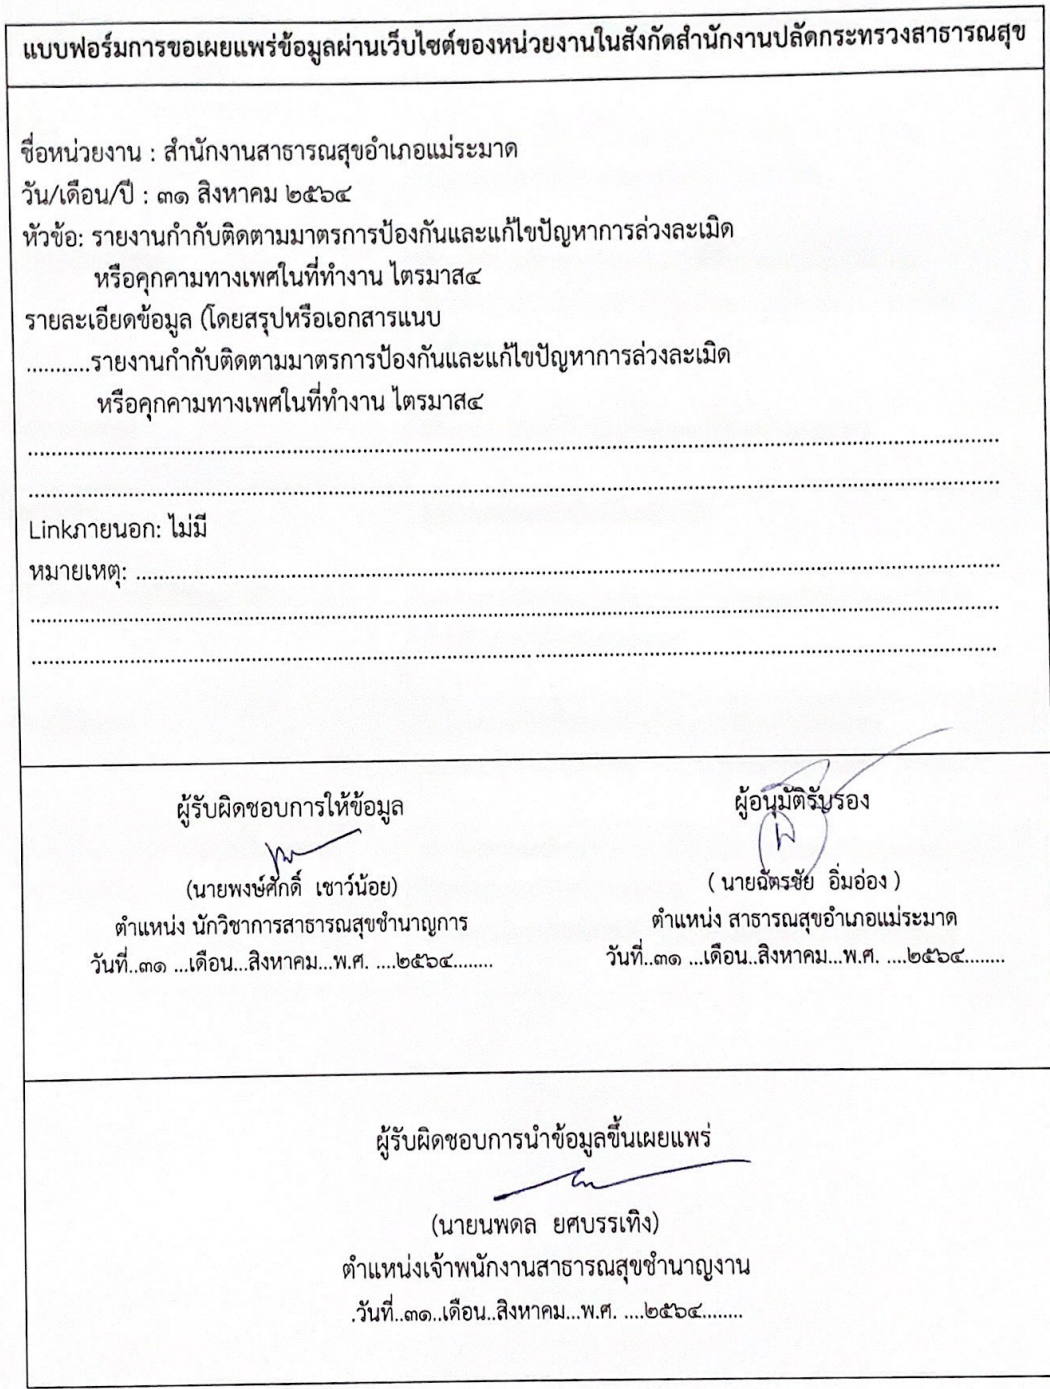 แบบฟอร์มการขอเผยแพร่ข้อมูลผ่านเว็บไซต์ของหน่วยงานในสังกัดสำนักงานปลัดกระทรวงสาธารณสุข
ชื่อหน่วยงาน : สำนักงานสาธารณสุขอำเภอแม่ระมาด
วัน/เดือน/ปี : ๓๑ สิงหาคม ๒๕๖๔
หัวข้อ: รายงานกำกับติดตามมาตรการป้องกันและแก้ไขปัญหาการล่วงละเมิด
หรือคุกคามทางเพศในที่ทำงาน ไตรมาส๔
รายละเอียดข้อมูล (โดยสรุปหรือเอกสารแนบ
...........รายงานกำกับติดตามมาตรการป้องกันและแก้ไขปัญหาการล่วงละเมิด
หรือคุกคามทางเพศในที่ทำงาน ไตรมาส๔
Linkภายนอก: ไม่มี
หมายเหตุ: ........................................................................
ผู้รับผิดชอบการให้ข้อมูล
(นายพงษ์ศักดิ์ เชาว์น้อย)
ตำแหน่ง นักวิชาการสาธารณสุขชำนาญการ
วันที่..๓๑ ...เดือน...สิงหาคม...พ.ศ. ....๒๕๖๔........
ผู้อนุมัติรับรอง
( นายฉัตรชัย อิ่มอ่อง )
ตำแหน่ง สาธารณสุขอำเภอแม่ระมาด
วันที่..๓๑ ...เดือน..สิงหาคม...พ.ศ. ....๒๕๖๔........
ผู้รับผิดชอบการนำข้อมูลขึ้นเผยแพร่
(นายนพดล ยศบรรเทิง)
ตำแหน่งเจ้าพนักงานสาธารณสุขชำนาญงาน
.วันที่..๓๑..เดือน..สิงหาคม...พ.ศ. ....๒๕๖๔........